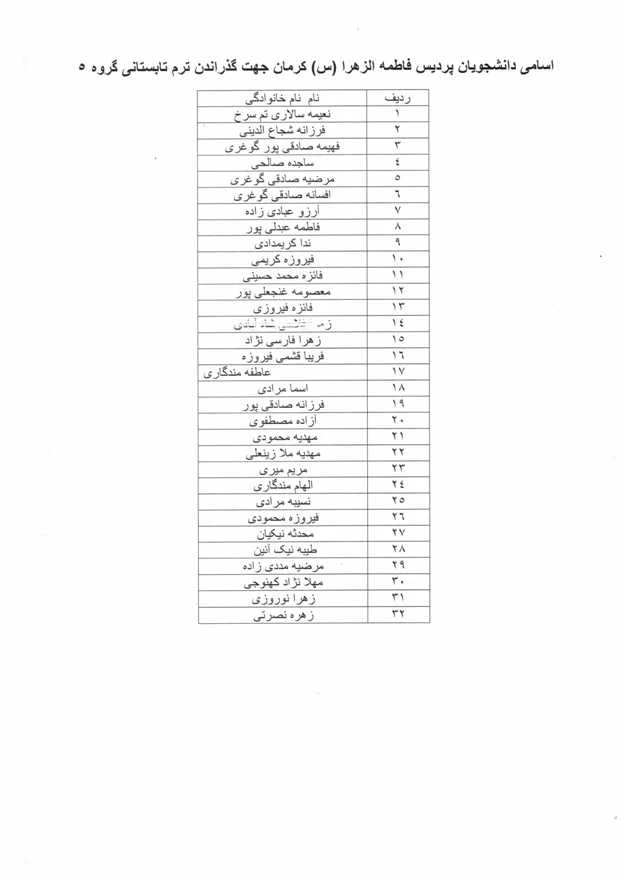 اسامی دانشجویان پردیس فاطمه الزهرا (س) کرمان جهت گذراندن ترم تابستانی گروه ٥
ردیف نام نام خانوادگی
١ نعیمه سالاری تم سرخ
٢ فرزانه شجاع الدینی
٣ فهیمه صادقی پور گوغری
٤ ساجده صالحی
٥ مرضیه صادقی گوغری
٦ افسانه صادقی گوغری
٧ آرزو عبادی زاده
٨ فاطمه عبدلی پور
٩ ندا کریمدادی
١٠ فیروزه کریمی
١١ فائزه محمد حسینی
١٢ معصومه غنجعلی پور
١٣ فائزه فیروزی
١٤
١٥ زهرا فارسی نژاد
١٦ فریبا قشمی فیروزه
١٧ عاطفه مندگاری
١٨ اسما مرادی
١٩ فرزانه صادقی پور
٢٠ آزاده مصطفوی
٢١ مهدیه محمودی
٢٢ مهدیه ملا زینعلی
٢٣ مریم میری
٢٤ الهام مندگاری
٢٥ نسیبه مرادی
٢٦ فیروزه محمودی
٢٧ محدثه نیکیان
٢٨ طیبه نیک آئین
٢٩ مرضیه مددی زاده
٣٠ مهلا نژاد کهنوجی
٣١ زهرا نوروزی
٣٢ زهره نصرتی